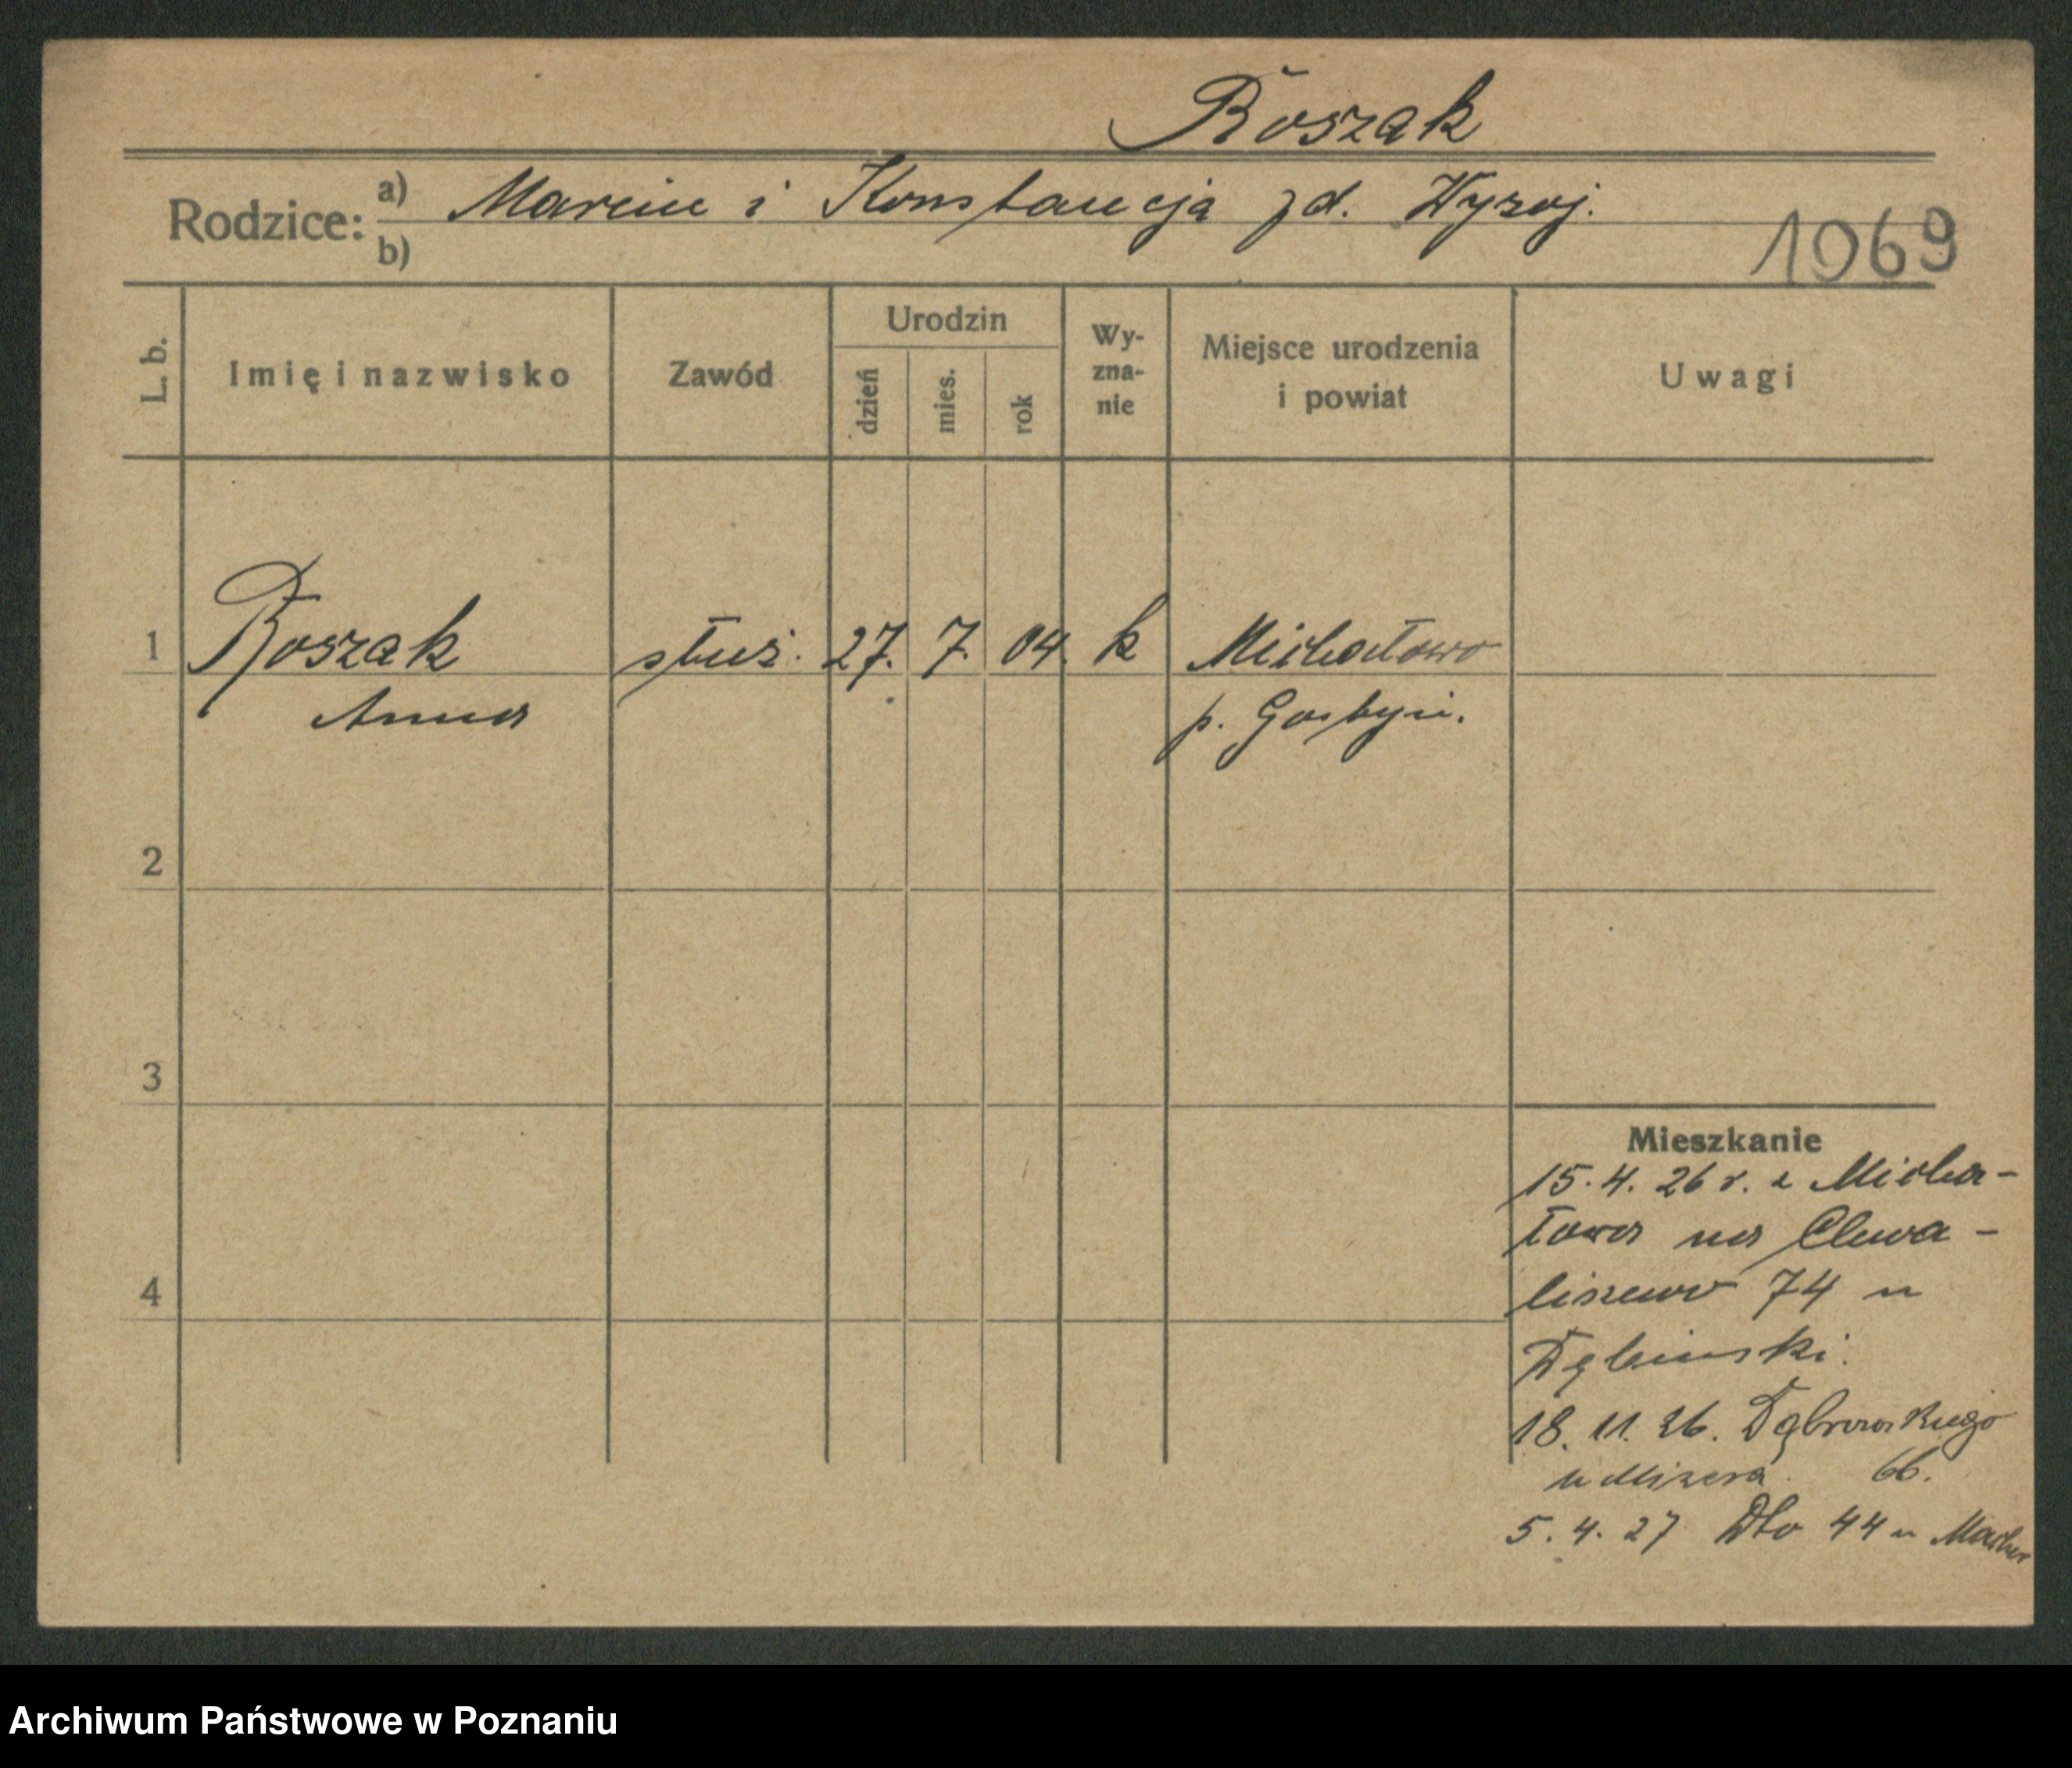 Roszak
Rodzice: a) Marcin i Konstancja zd. Wyzuj.
b)
1069
L. b.
Imię i nazwisko
Zawód
Urodzin
dzień
mies.
rok
Wy-
zna-
nie
Miejsce urodzenia
i powiat
Uwagi
1 Roszak służ. 27. 7. 04. k Michałowo
Anna p. Gostyń.
2
3
4
Mieszkanie
15. 4. 26 r. z Micha-
łowa na Chwa-
liszewo 74 u
Dębinski.
18. 11. 26. Dąbrowskiego
u Mizera 66.
5. 4. 27 Dto 44 u
Archiwum Państwowe w Poznaniu